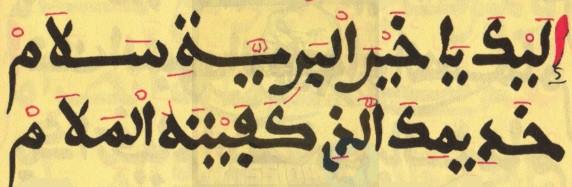 إليك يا خير البرية سلام
خديمك الذي كفيته الملام